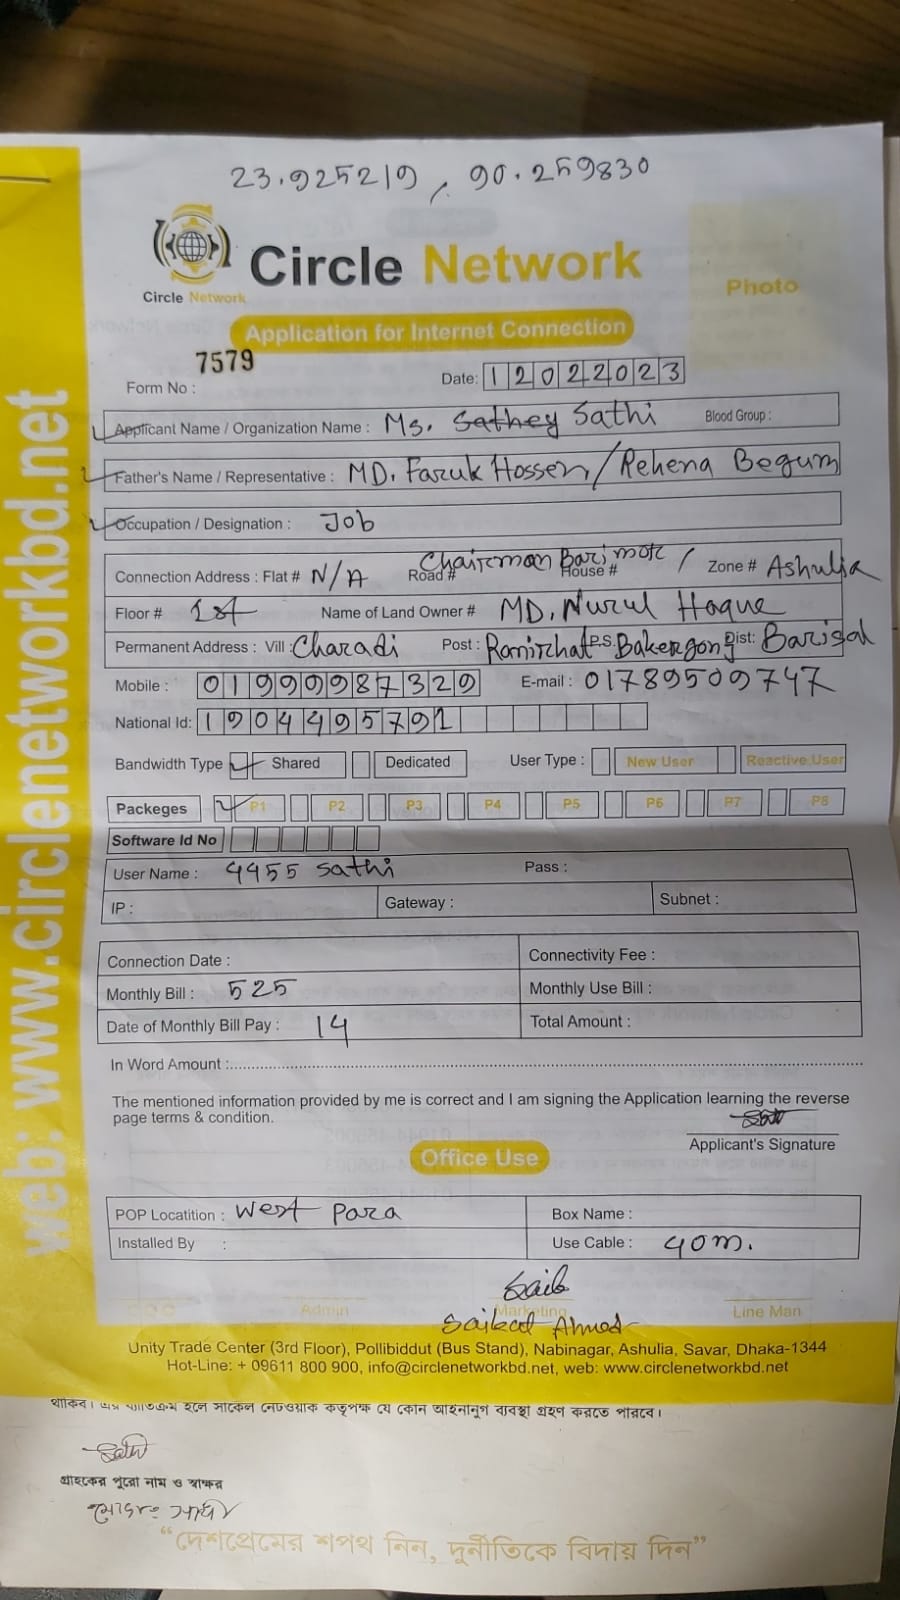 23.925219, 90.259830
Circle Network
Circle Network
Photo
Application for Internet Connection
Form No : 7579
Date: 12022023
Applicant Name / Organization Name : Ms. Sathey Sathi Blood Group :
Father's Name / Representative : MD. Faruk Hossen/Rehena Begum
Occupation / Designation : Job
Connection Address : Flat # N/A Road # Chairman Bari more / House # Zone # Ashulia
Floor # 1st Name of Land Owner # MD. Nurul Haque
Permanent Address : Vill : Charadi Post : P.S. Bakergong Dist: Barisal
Mobile : 01999987329 E-mail : 01789509747
National Id: 1904495791
Bandwidth Type Shared Dedicated User Type : New User Reactive User
Packeges P1 P2 P3 P4 P5 P6 P7 P8
Software Id No
User Name : 4455 Sathi Pass :
IP : Gateway : Subnet :
Connection Date : Connectivity Fee :
Monthly Bill : 525 Monthly Use Bill :
Date of Monthly Bill Pay : 14 Total Amount :
In Word Amount :
The mentioned information provided by me is correct and I am signing the Application learning the reverse
page terms & condition.
Applicant's Signature
Office Use
POP Locatition : West Para Box Name :
Installed By : Use Cable : 40m.
Admin Marketing Line Man
Saikat Ahmed
Unity Trade Center (3rd Floor), Pollibiddut (Bus Stand), Nabinagar, Ashulia, Savar, Dhaka-1344
Hot-Line: + 09611 800 900, info@circlenetworkbd.net, web: www.circlenetworkbd.net
web: www.circlenetworkbd.net
থাকিব। এর ব্যতিক্রম হলে সার্কেল নেটওয়ার্ক কতৃপক্ষ যে কোন আইনানুগ ব্যবস্থা গ্রহণ করতে পারবে।
গ্রাহকের পুরো নাম ও স্বাক্ষর
মোসাঃ সাথী
“দেশপ্রেমের শপথ নিন, দুর্নীতিকে বিদায় দিন”